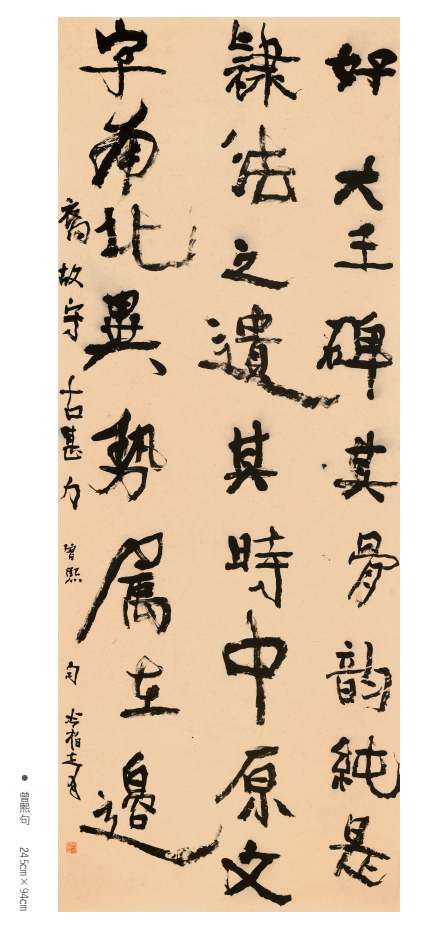 好大王碑其骨韵純是
隸法之遺其時中原文
字南北異勢屬在邊
裔故守古甚力
曾熙
句
● 曾熙句 245cm×94cm